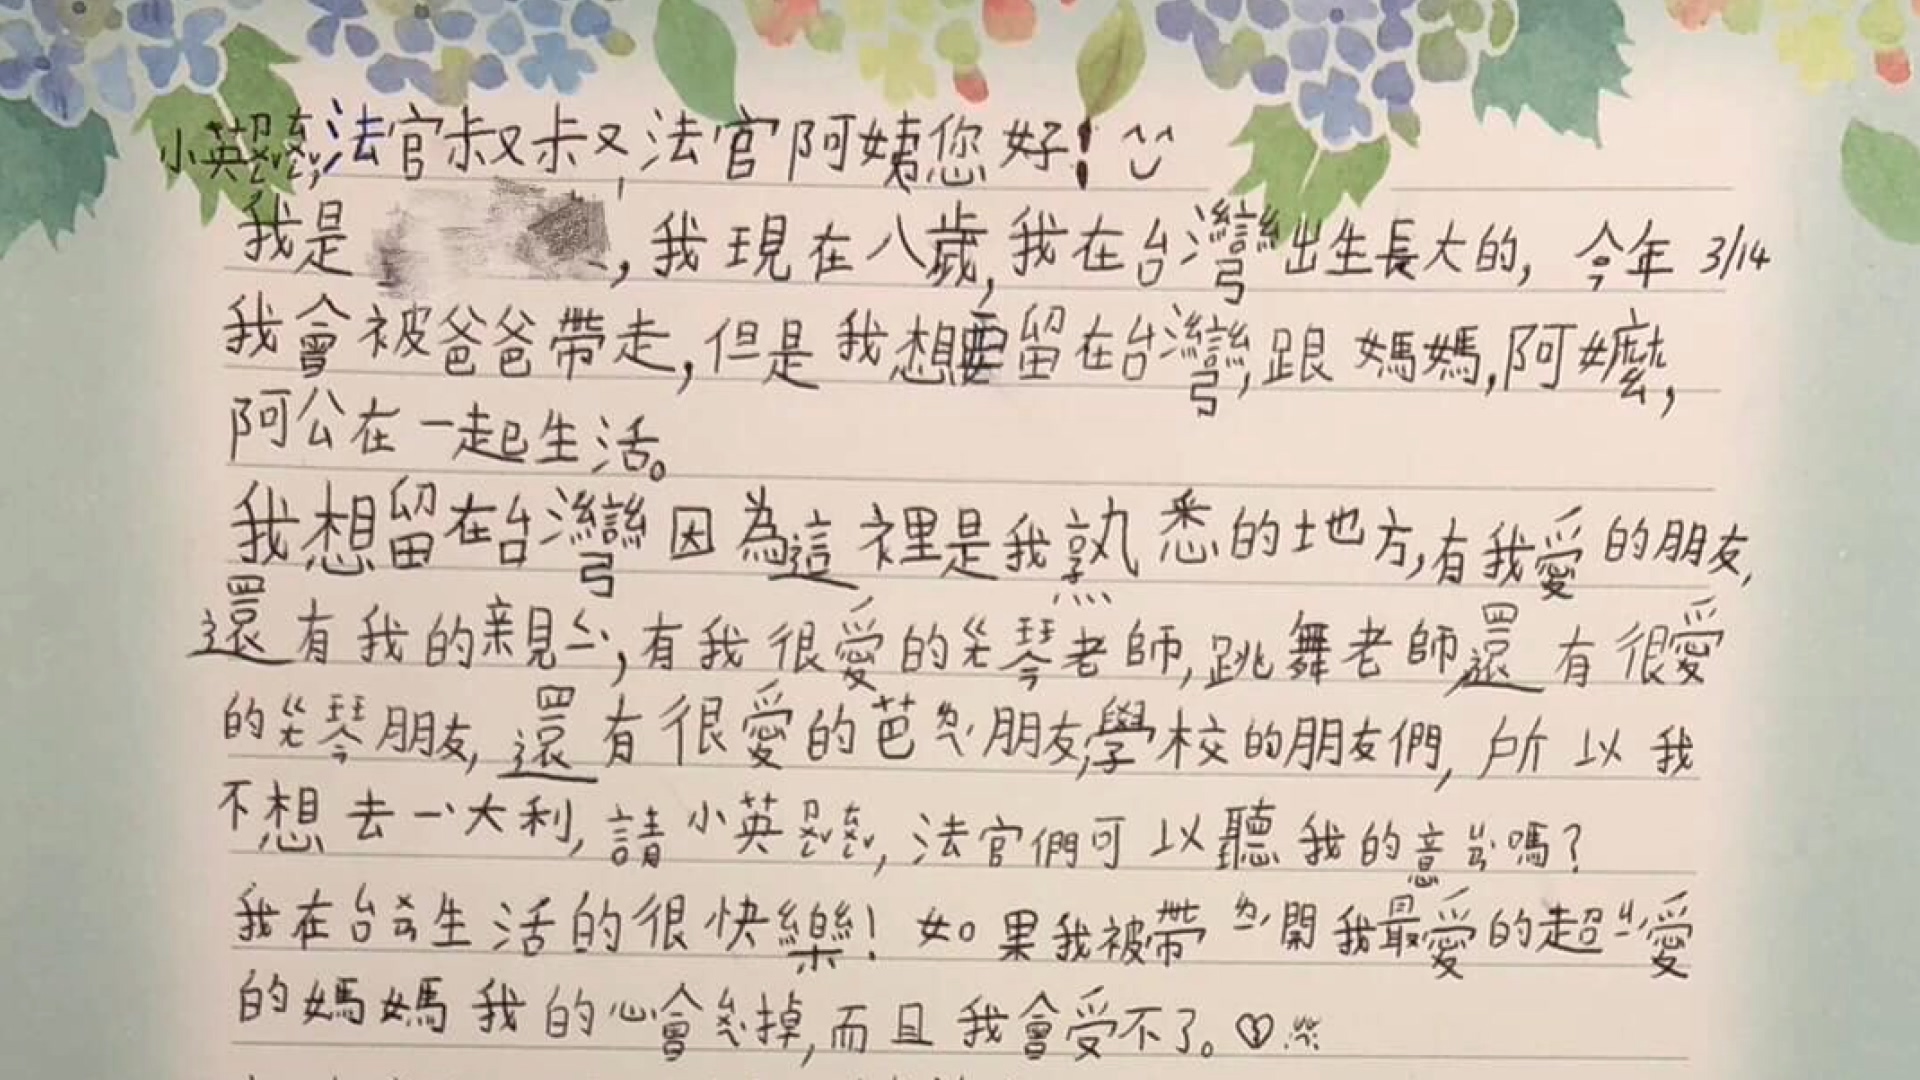 小英ㄗㄨㄥˇㄊㄨㄥˇ,法官叔叔,法官阿姨您好!
我是,我現在八歲,我在台灣出生長大的,今年3/14
我會被爸爸帶走,但是我想要留在台灣,跟媽媽,阿嬤,
阿公在一起生活。
我想留在台灣因為這裡是我熟悉的地方,有我愛的朋友,
還有我的親ㄑㄧˊ,有我很愛的ㄍㄤ琴老師,跳舞老師還有很愛
的ㄍㄤ琴朋友,還有很愛的芭ㄌㄟˊ朋友,學校的朋友們,所以我
不想去一ˋ大利,請小英ㄗㄨㄥˇㄊㄨㄥˇ,法官們可以聽我的意ㄐㄧㄢˋ嗎?
我在台ㄨㄢ生活的很快樂!如果我被帶ㄌㄧˊ開我最愛的超ㄐㄧˊ愛
的媽媽我的心會ㄙㄨㄟˋ掉,而且我會受不了。